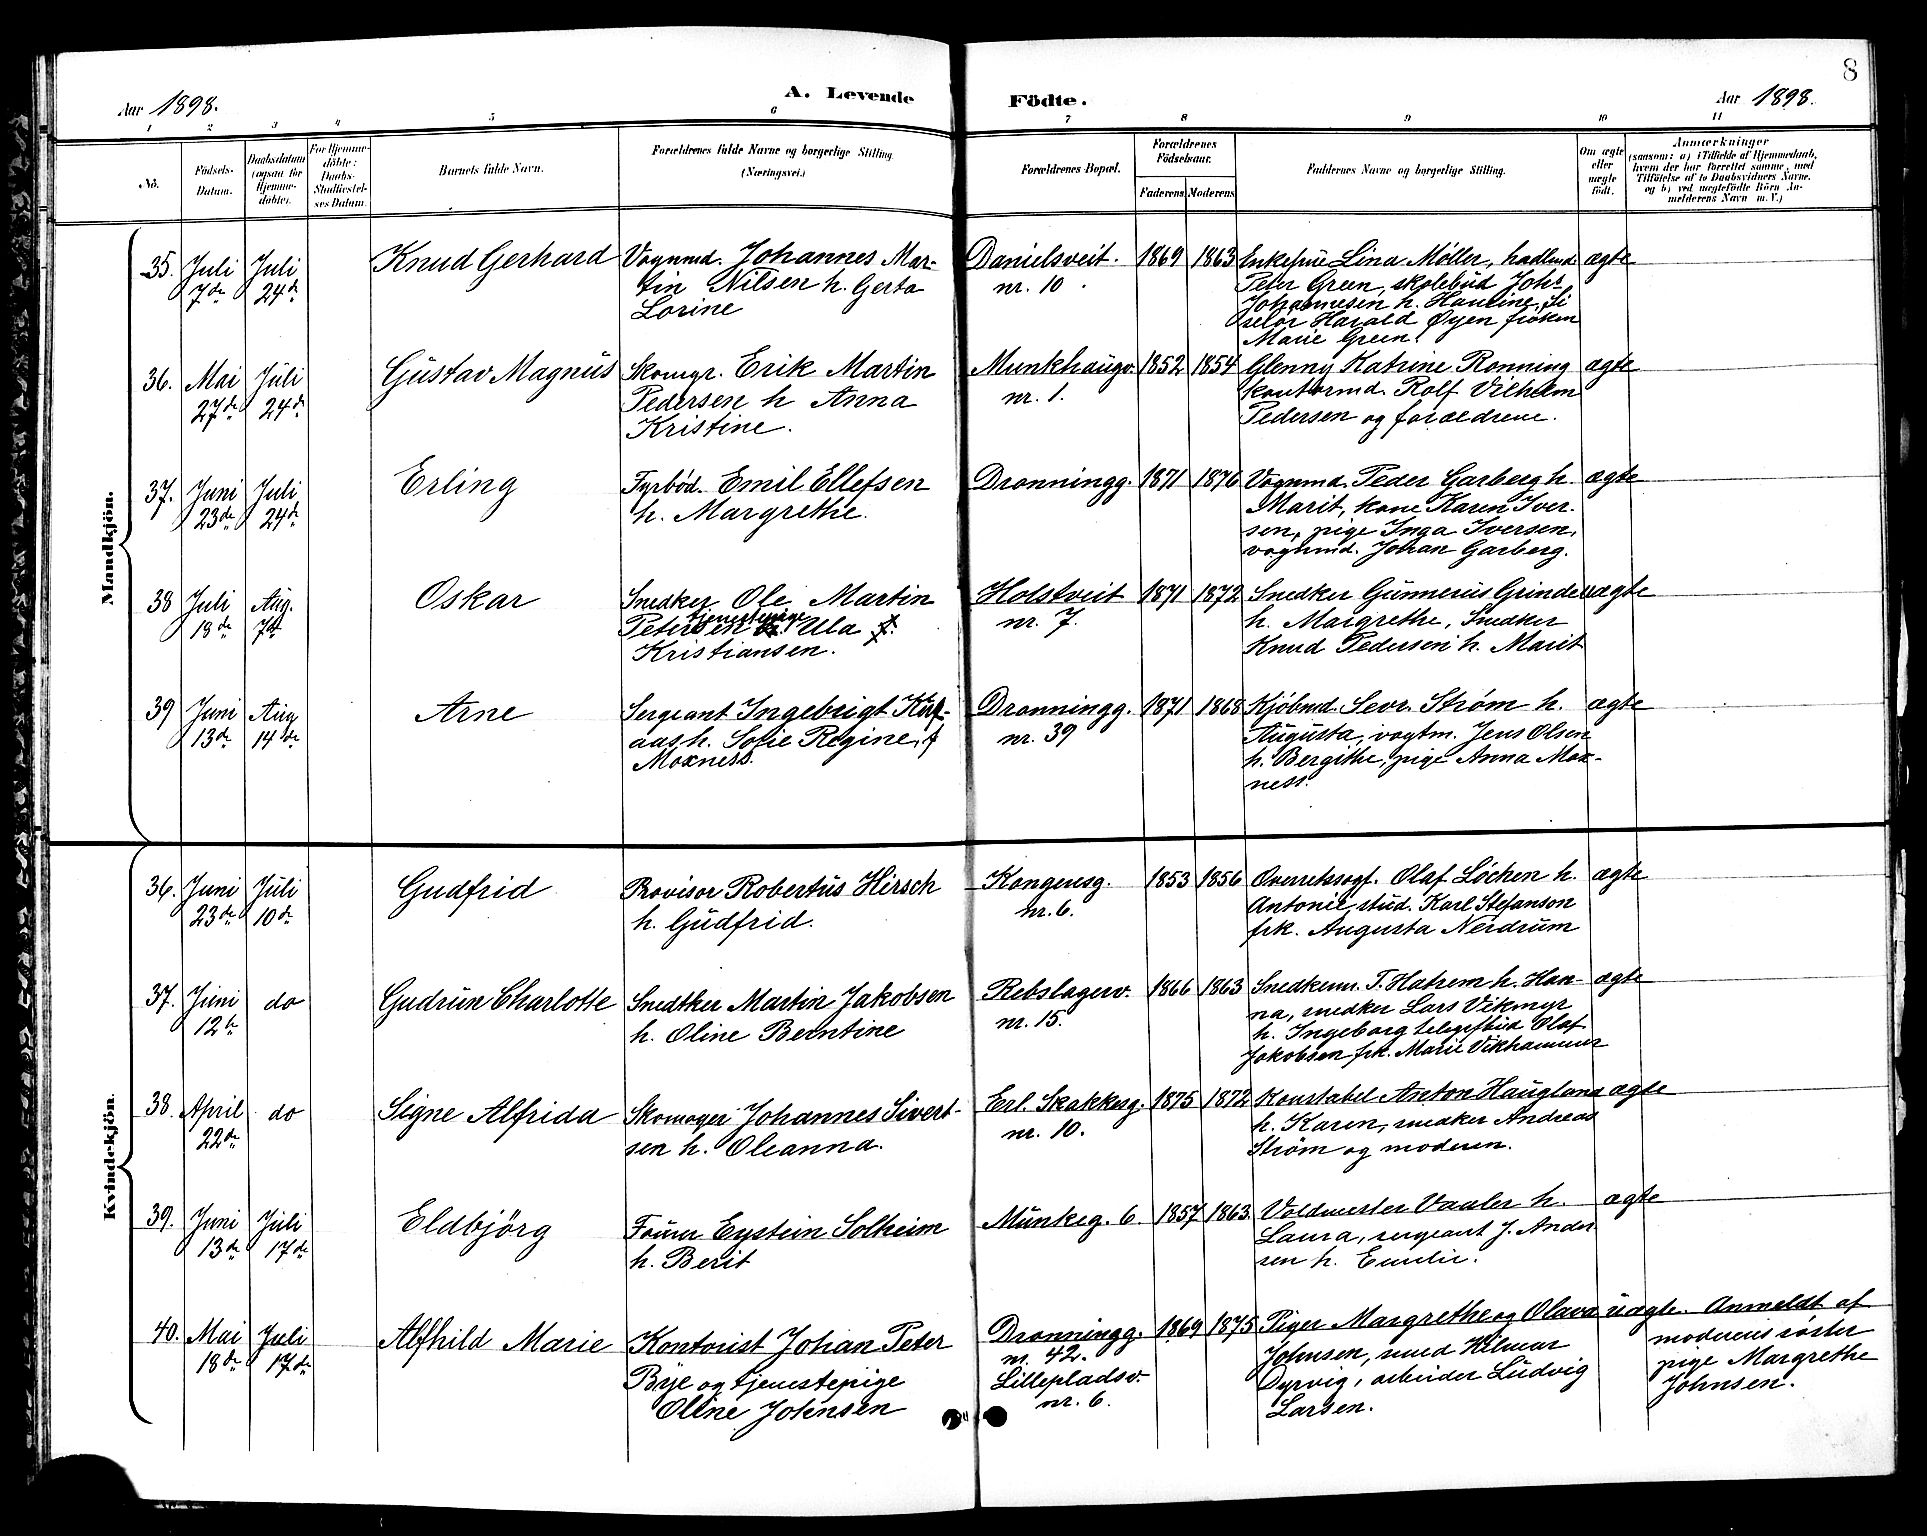 8
Aar 1898.
A. Levende Födte.
Aar 1898.
1 2 3 4 5 6 7 8 9 10 11
No.
Födsels-
Datum.
Daabsdatum
(ogsaa for
Hjemme-
döbte).
For Hjemme-
döbte:
Daabs-
Stadfæstel-
ses Datum.
Barnets fulde Navn.
Forældrenes fulde Navne og borgerlige Stilling
(Næringsvei.)
Forældrenes Bopæl.
Forældrenes
Födselsaar.
Faderens Moderens
Faddernes Navne og borgerlige Stilling.
Om ægte
eller
uægte
födt.
Anmærkninger
(saasom: a) i Tilfælde af Hjemmedaab,
hvem der har forrettet samme, med
Tilföielse af to Daabsvidners Navne,
og b) ved uægtefödte Börn An-
melderens Navn m. V.)
Mandkjön.
35. Juli
7de
Juli
24de
Knud Gerhard
Vognmd. Johannes Mar-
tin Nilsen h. Gerta
Lorine
Danielsveit.
nr. 10.
1869 1863
Enkefru Lina Møller,
Peter Green, skolebud Johs
Johannesen h. Haurine,
Harald Øyen frøken
Marie Green.
ægte
36. Mai
27de
Juli
24de
Gustav Magnus
Skomgr. Erik Martin
Pedersen h Anna
Kristine.
Munkhaugv.
nr. 1.
1852 1854
Glenny Katrine Ronning
kontormd. Rolf Vilhelm
Pedersen og forældrene.
ægte
37. Juni
23de
Juli
24de
Erling
Fyrbød. Emil Ellefsen
h. Margrethe.
Dronningg.
1871 1876
Vognmd. Peder Garberg h.
Marit, kone Karen Iver-
sen, pige Inga Iversen,
vognmd. Johan Garberg.
ægte
38 Juli
18de
Aug.
7de
Oskar
Snedker Ole Martin
tjenestepige
Petersen Ula
Kristiansen.
Holstveit
nr. 7.
1871 1872
Snedker Gunnerius Grinde
h. Margrethe, Snedker
Knud Pedersen h. Marit
uægte
39 Juni
13de
Aug
14de
Arne
Sergeant Ingebrigt
aas h. Sofie Regine, f
Moxness.
Dronningg.
nr. 39
1871 1868
Kjøbmd. Sevr. Strøm h.
Augusta, vogtm. Jens Olsen
h. Bergithe, pige Anna Mox-
ness.
ægte
Kvindekjön.
36. Juni
23de
Juli
10de
Gudfrid
Provisor Robertus Hirsch
h. Gudfrid.
Kongensg.
nr. 6.
1853 1856
Overretssagf. Olaf Løchen h.
Antonie, stud. Karl Stefanson
frk. Augusta Nerdrum
ægte
37. Juni
12te
do
Gudrun Charlotte
Snedtker Martin Jakobsen
h. Oline Berntine
Rebslagerv.
nr. 15.
1866 1863
Snedkerm. T. Hatrem h. Han-
na, snedker Lars Vikmyr
h. Ingeborg telegrfbud Olaf
Jakobsen frk. Marie Vikhammer
ægte
38. April
22de
do
Signe Alfrida
Skomager Johannes Sivert-
sen h. Oleanna.
Erl. Skakkesg.
nr. 10.
1875 1872
Konstabel Anton Haugland
h. Karen, snedker Andreas
Strøm og moderen.
ægte
39. Juni
13de
Juli
17de
Eldbjörg
Fourer Eystein Solheim
h. Berit
Munkeg. 6.
1857 1863.
Voldmester Vaaler h.
Laura, sergeant J. Ander
sen h. Emilie.
ægte
40. Mai
18de
Juli
17de
Alfhild Marie
Kontorist Johan Peter
Bye og tjenestepige
Oline Johnsen
Dronningg.
nr. 42.
Lillepladsv.
nr. 6.
1869 1875
Piger Margrethe og Olava
Johnsen, smed Hilmar
Dyrvig, arbeider Ludvig
Larsen.
uægte.
Anmeldt af
moderens søster
pige Margrethe
Johnsen.